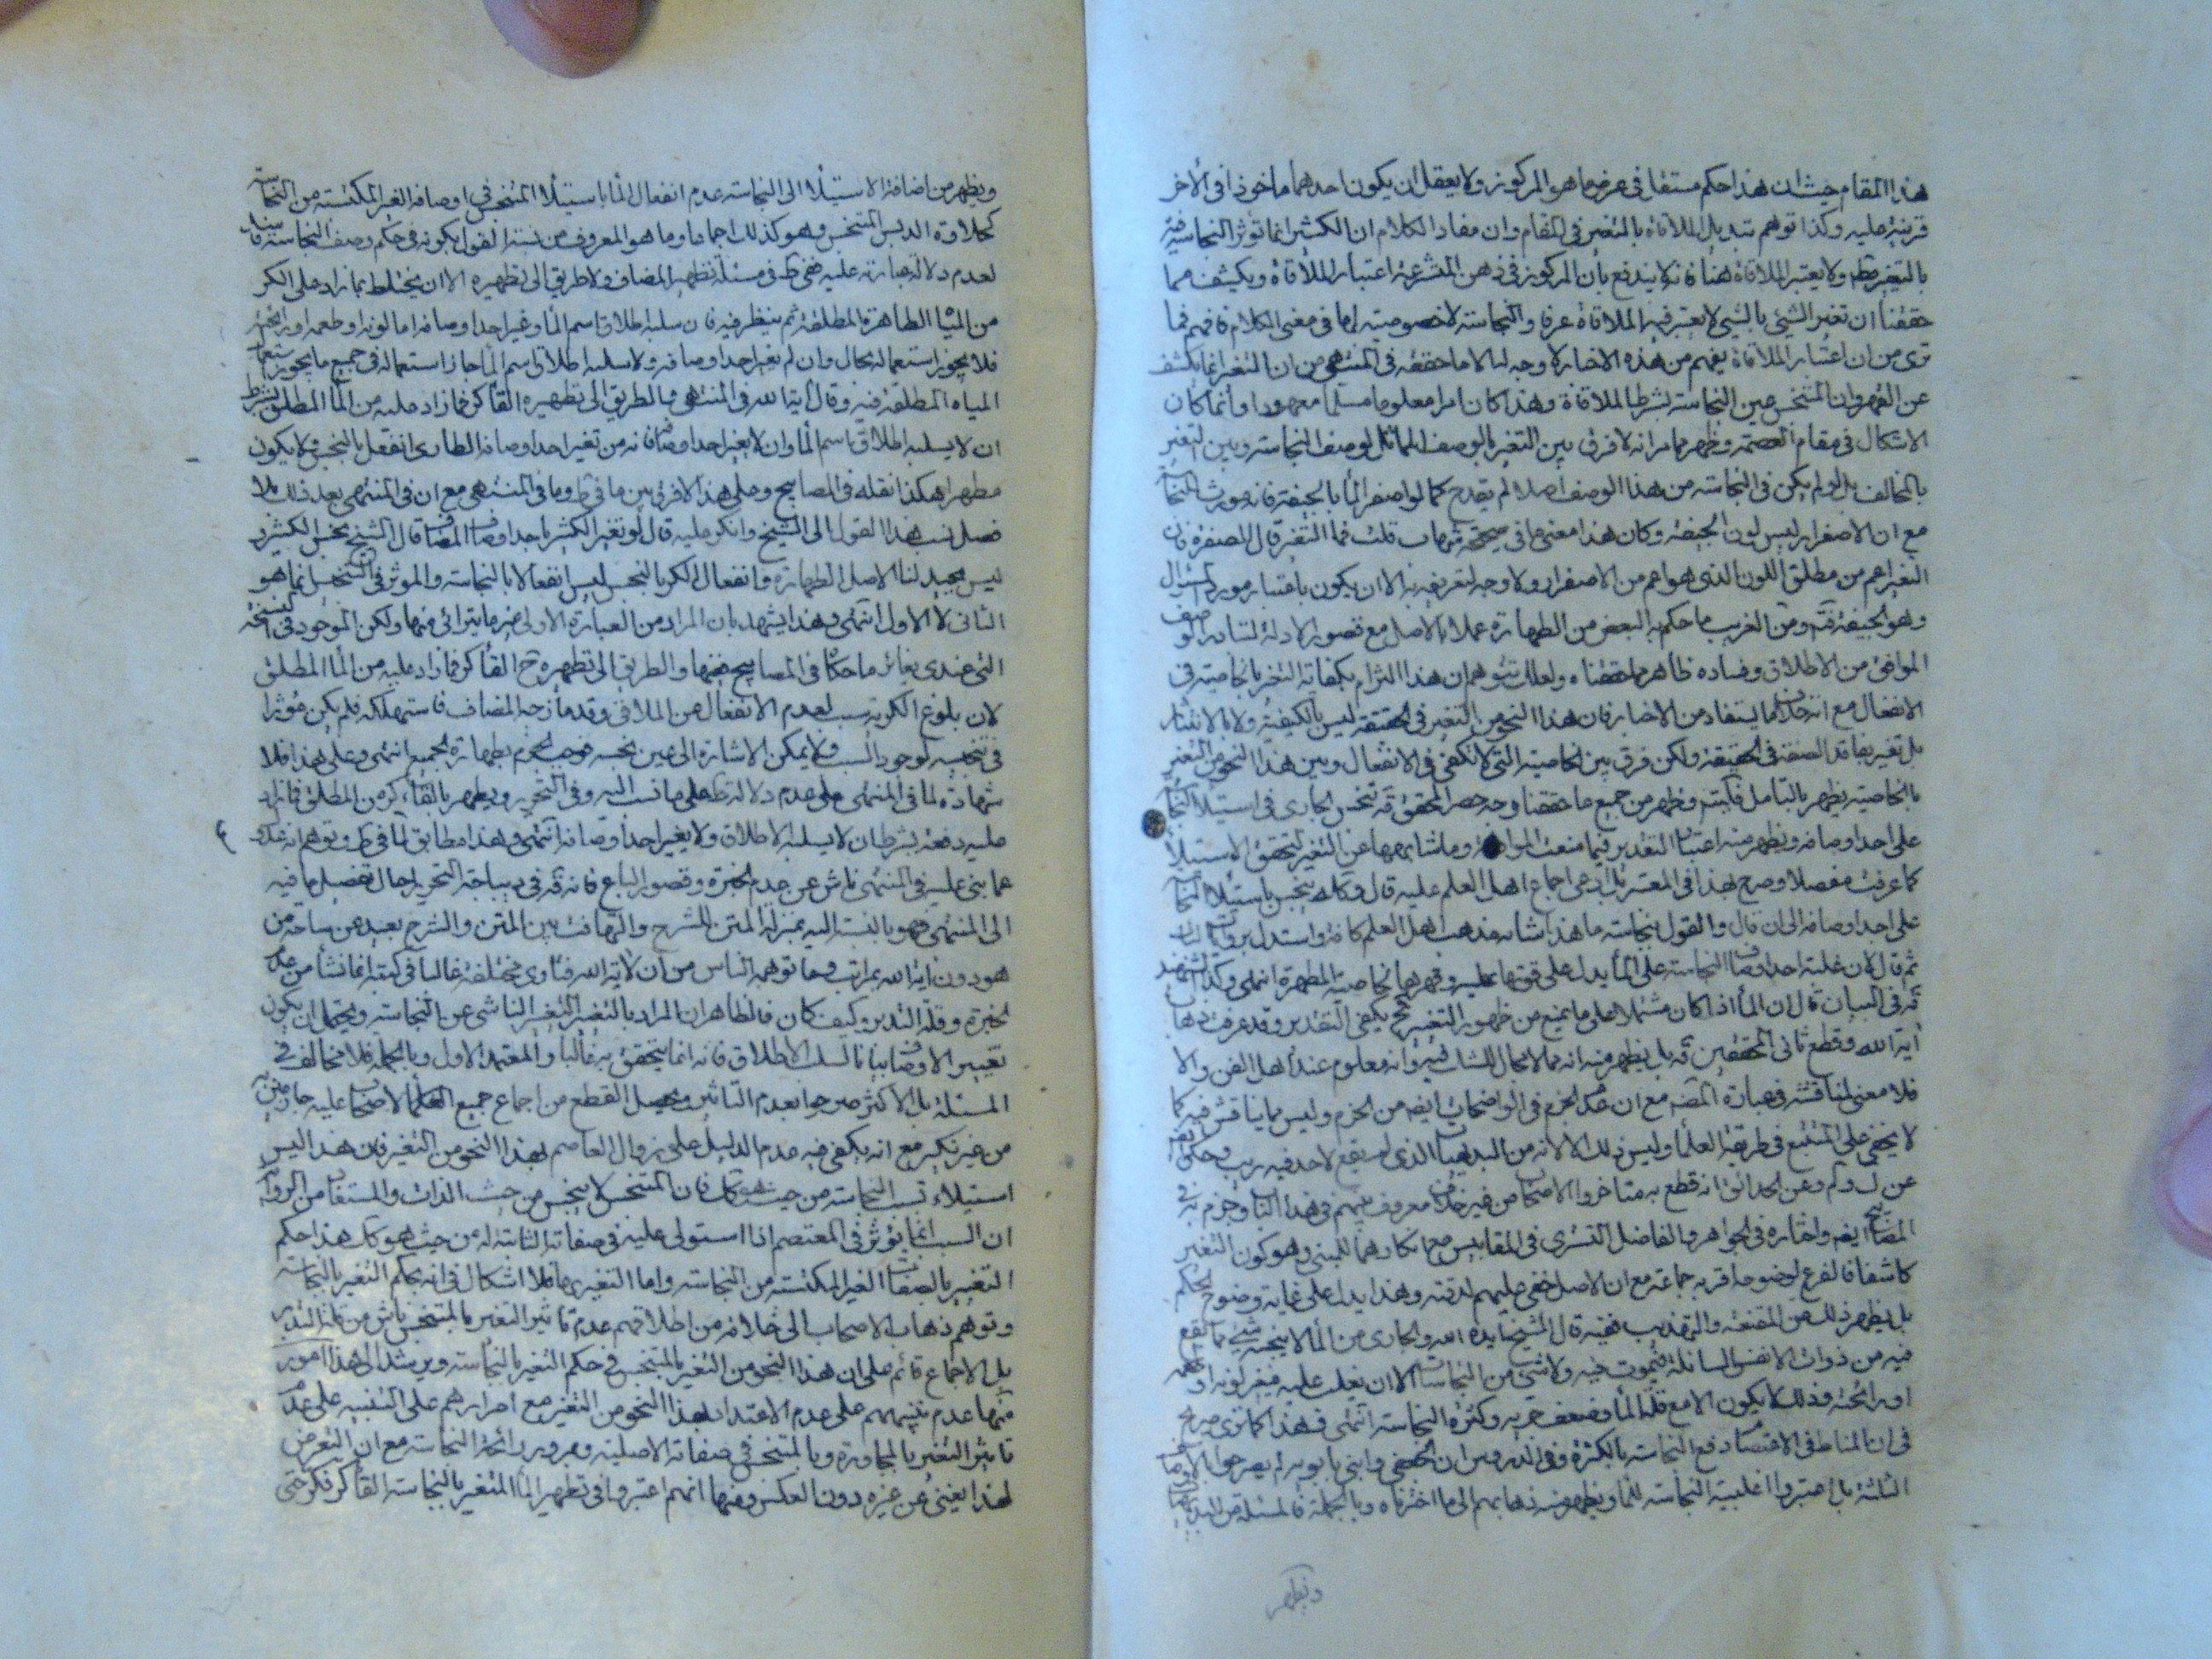 هذا المقام حيث ان هذا حكم مستفا في عرض ما هو المركوز ولا يعقل ان يكون احدهما ماخوذا في الاخر
قرينة عليه وكذا توهم تبديل الملاقاة بالتغير في المقام وان مفاد الكلام ان الكثير انما تؤثر النجاسة فيه
بالتغير ولا يعتبر الملاقاة يندفع بأن المركوز في ذهن المتشرعة اعتبار الملاقاة ويكشف عما
حققنا ان تغير الشئ بالشئ لا يعتبر فيه الملاقاة عرفا والنجاسة لا خصوصية لها في معنى الكلام فافهم فما
ترى من ان اعتبار الملاقاة يفهم من هذه الاخبار لا وجه لها الا ما حققه في المنتهى من ان التغير انما يكشف
عن القهر وان المتنجس عين النجاسة بشرط الملاقاة وهذا كان امرا معلوما مسلما معهودا وانما كان
الاشكال في مقام العصمة وظهر مما مر انه لا فرق بين التغير بالوصف المماثل لوصف النجاسة وبين التغير
بالمخالف بل لو لم يكن في النجاسة من هذا الوصف اصلا لم يقدح كما لو اصفر الماء بالجيفة
مع ان الاصفرار ليس لون الجيفة وكان هذا معنى ما في صحيحة شهاب قلت فما التغير قال الصفرة فان
التغير اعم من مطلق اللون الذي هو اعم من الاصفرار ولا وجه لتعريفه به الا ان يكون باعتبار مورد السؤال
وهو الجيفة ومن الغريب ما حكم به البعض من الطهارة عملا بالاصل مع قصور الادلة لتبادر الوصف
الموافق من الاطلاق وفساده ظاهر مما حققناه ولعلك تتوهم ان هذا التزام بكفاية التغير بالخاصية في
الانفعال مع انه خلاف ما يستفاد من الاخبار فان هذا النحو من التغير في الحقيقة ليس بالكيفية ولا بالانتشار
بل تغير بفاقد الصفة في الحقيقة ولكن فرق بين الخاصية التي لا تكفي في الانفعال وبين هذا النحو من التغير
بالخاصية يظهر بالتأمل وظهر من جميع ما حققنا وجه حصر المحقق تنجس الجاري في استيلاء النجاسة
على احد اوصافه ويظهر منه اعتبار التقدير فيما منعت وما شابهها عن التغير لتحقق الاستيلاء
كما عرفت مفصلا وصرح بهذا في المعتبر بل ادعى اجماع اهل العلم عليه قال وكله ينجس باستيلاء النجاسة
على احد اوصافه الى ان قال والقول بنجاسة ما هذا شانه مذهب اهل العلم كافة واستدل بروايات
ثم قال لان غلبة احد اوصاف النجاسة على الماء يدل على قوتها عليه وقهرها لخاصية المطهرة انتهى وكذا الشهيد
في البيان قال ان الماء اذا كان مشتملا على ما يمنع من ظهور التغير يكفي التقدير وقد عرفت
اية الله وقطع ثاني المحققين بل يظهر منه انه مما لا مجال للشك فيه وانه معلوم عند اهل الفن والا
فلا معنى لمناقشة في عبارة مع ان عدم الجزم في الواضحات ايضا من الجزم وليس مما يناقش فيه كما
لا يخفى على المتتبع في طريقة العلماء وليس ذلك الا لانه من البديهيات الذي لم يقع لاحد فيه ريب وحكى
عن الحدائق انه قطع به متاخروا الاصحاب من غير خلاف معروف بينهم في هذا الباب وجزم به في
المصابيح ايضا واختاره في الجواهر والفاضل التستري في المقابيس مع انكارهما للمبنى وهو كون التغير
كاشفا فالفرع لوضوحه اقر به جماعة مع ان الاصل خفي عليهم لدقته وهذا يدل على غاية وضوح الحكم
بل يظهر ذلك من المقنعة والتهذيب ففيه قال الشيخ ايده الله والجاري من الماء لا ينجسه شئ مما يقع
فيه من ذوات الانفس السائلة فيموت فيه ولا شئ من النجاسات الا ان يغلب عليه فيغير لونه او طعمه
او رائحته وذلك لا يكون الا مع قلة الماء وضعف جريه وكثرة النجاسة انتهى وهذا كما ترى صريح
في ان المناط في دفع النجاسة بالكثرة وفي الدروس ان الجعفي وابني بابويه لم يصرحوا بالاوصاف
الثلثة بل اعتبروا اغلبية النجاسة للماء ويظهر منه ذهابهم الى ما اخترناه وبالجملة فالمسئلة من
ويظهر
ويظهر من اضافة الاستيلاء الى النجاسة عدم انفعال الماء باستيلاء المتنجس في اوصافه الغير المكتسبة من النجاسة
كحلاوة الدبس المتنجس وهو كذلك اجماعا وما هو المعروف من نسبة القول بكونه في حكم وصف النجاسة
لعدم دلالة عبارته عليه ففي ط في مسئلة تطهير المضاف ولا طريق الى تطهيره الا ان يختلط بما زاد على الكر
من المياه الطاهرة المطلقة ثم ينظر فيه فان سلبه اطلاق اسم الماء وغير احد اوصافه اما لونه او طعمه او رائحته
فلا يجوز استعماله بحال وان لم يغير احد اوصافه ولا سلبه اطلاق اسم الماء جاز استعماله في جميع ما يجوز استعمال
المياه المطلقة فيه وقال اية الله في المنتهى والطريق الى تطهيره القاء كر فما زاد عليه من الماء المطلق بشرط
ان لا يسلبه اطلاق اسم الماء وان لا يغير احد اوصافه فانه من تغير احد اوصافه الطاري انفعل بالنجس ولا يكون
مطهرا هكذا نقله في المصابيح وعلى هذا لا فرق بين ما في ط وما في المنتهى مع ان في المنتهى بعد ذلك بلا
فصل نسب هذا القول الى الشيخ وانكر عليه قال لو تغير الكثير باحد اوصاف المضاف قال الشيخ ينجس الكثير و
ليس بجيد لنا الاصل الطهارة وانفعال الكر بالنجس ليس انفعالا بالنجاسة والموثر في التنجس انما هو
الثاني لا الاول انتهى وهذا يشهد بان المراد من العبارة الاولى غير ما يترائى منها ولكن الموجود في النسخة
التي عندي يغائر ما حكاه في المصابيح ففيها والطريق الى تطهيره ح القاء كر فما زاد عليه من الماء المطلق
لان بلوغ الكرية سبب لعدم الانفعال عن الملاقي وقد مازجه المضاف فاستهلكه فلم يكن مؤثرا
في تنجيسه لوجود السبب ولا يمكن الاشارة الى عين نجسة فوجب الجزم بطهارة الجميع انتهى وعلى هذا فلا
شهادة لما في المنتهى على عدم دلالة ط على ما نسب اليه وفي التحرير ويطهر بالقاء كر من المطلق فما زاد
عليه دفعة بشرط ان لا يسلبه الاطلاق ولا يغير احد اوصافه انتهى وهذا مطابق لما في ط وتوهم انه عدول
عما بنى عليه في المنتهى ناش عن عدم الخبرة وقصور الباع فانه في ديباجة التحرير احال تفصيل ما فيه
الى المنتهى فهو بالنسبة اليه بمنزلة المتن للشرح والتهافت بين المتن والشرح بعيد عن ساحة من
هو دون اية الله بمراتب وما توهمه الناس من ان لاية الله فتاوى مختلفة غالبا في كتبه انما نشأ من عدم
الخبرة وقلة التدبر وكيف كان فالظاهر ان المراد بالتغير التغير الناشي عن النجاسة ويحتمل ان يكون
تغيير الاوصاف الاطلاق فانه انما يتحقق به غالبا والمعتمد الاول وبالجملة فلا مخالف في
المسئلة بل الاكثر صرحوا بعدم التاثير ويحصل القطع من اجماع جميع العلماء الاصحاب عليه
من غير نكير مع انه يكفي فيه عدم الدليل على زوال العاصم بهذا النحو من التغير فان هذا ليس
استيلاء سبب النجاسة من حيث هو كك فان المتنجس لا ينجس من حيث الذات والمستفاد من الروايات
ان السبب انما يؤثر في المعتصم اذا استولى عليه في صفاته الثابتة له من حيث هو كك هذا حكم
التغير بالصفات الغير المكتسبة من النجاسة واما التغير بها فلا اشكال في انه بحكم التغير بالنجاسة
وتوهم ذهاب الاصحاب الى خلافه من اطلاقهم عدم تأثير التغير بالمتنجس ناش من قلة التدبر
بل الاجماع قائم على ان هذا النحو من التغير بالمتنجس في حكم التغير بالنجاسة ويرشد الى هذا امور
منها عدم تنبيههم على عدم الاعتداد بهذا النحو من التغير مع اصرارهم على التنبيه على عدم
تاثير التغير بالمجاورة وبالمتنجس في صفاته الاصلية ومرور رائحة النجاسة مع ان التعرض
لهذا يغني عن غيره دون العكس ومنها انهم اعتبروا في تطهير الماء المتغير بالنجاسة القاء كر فكر حتى